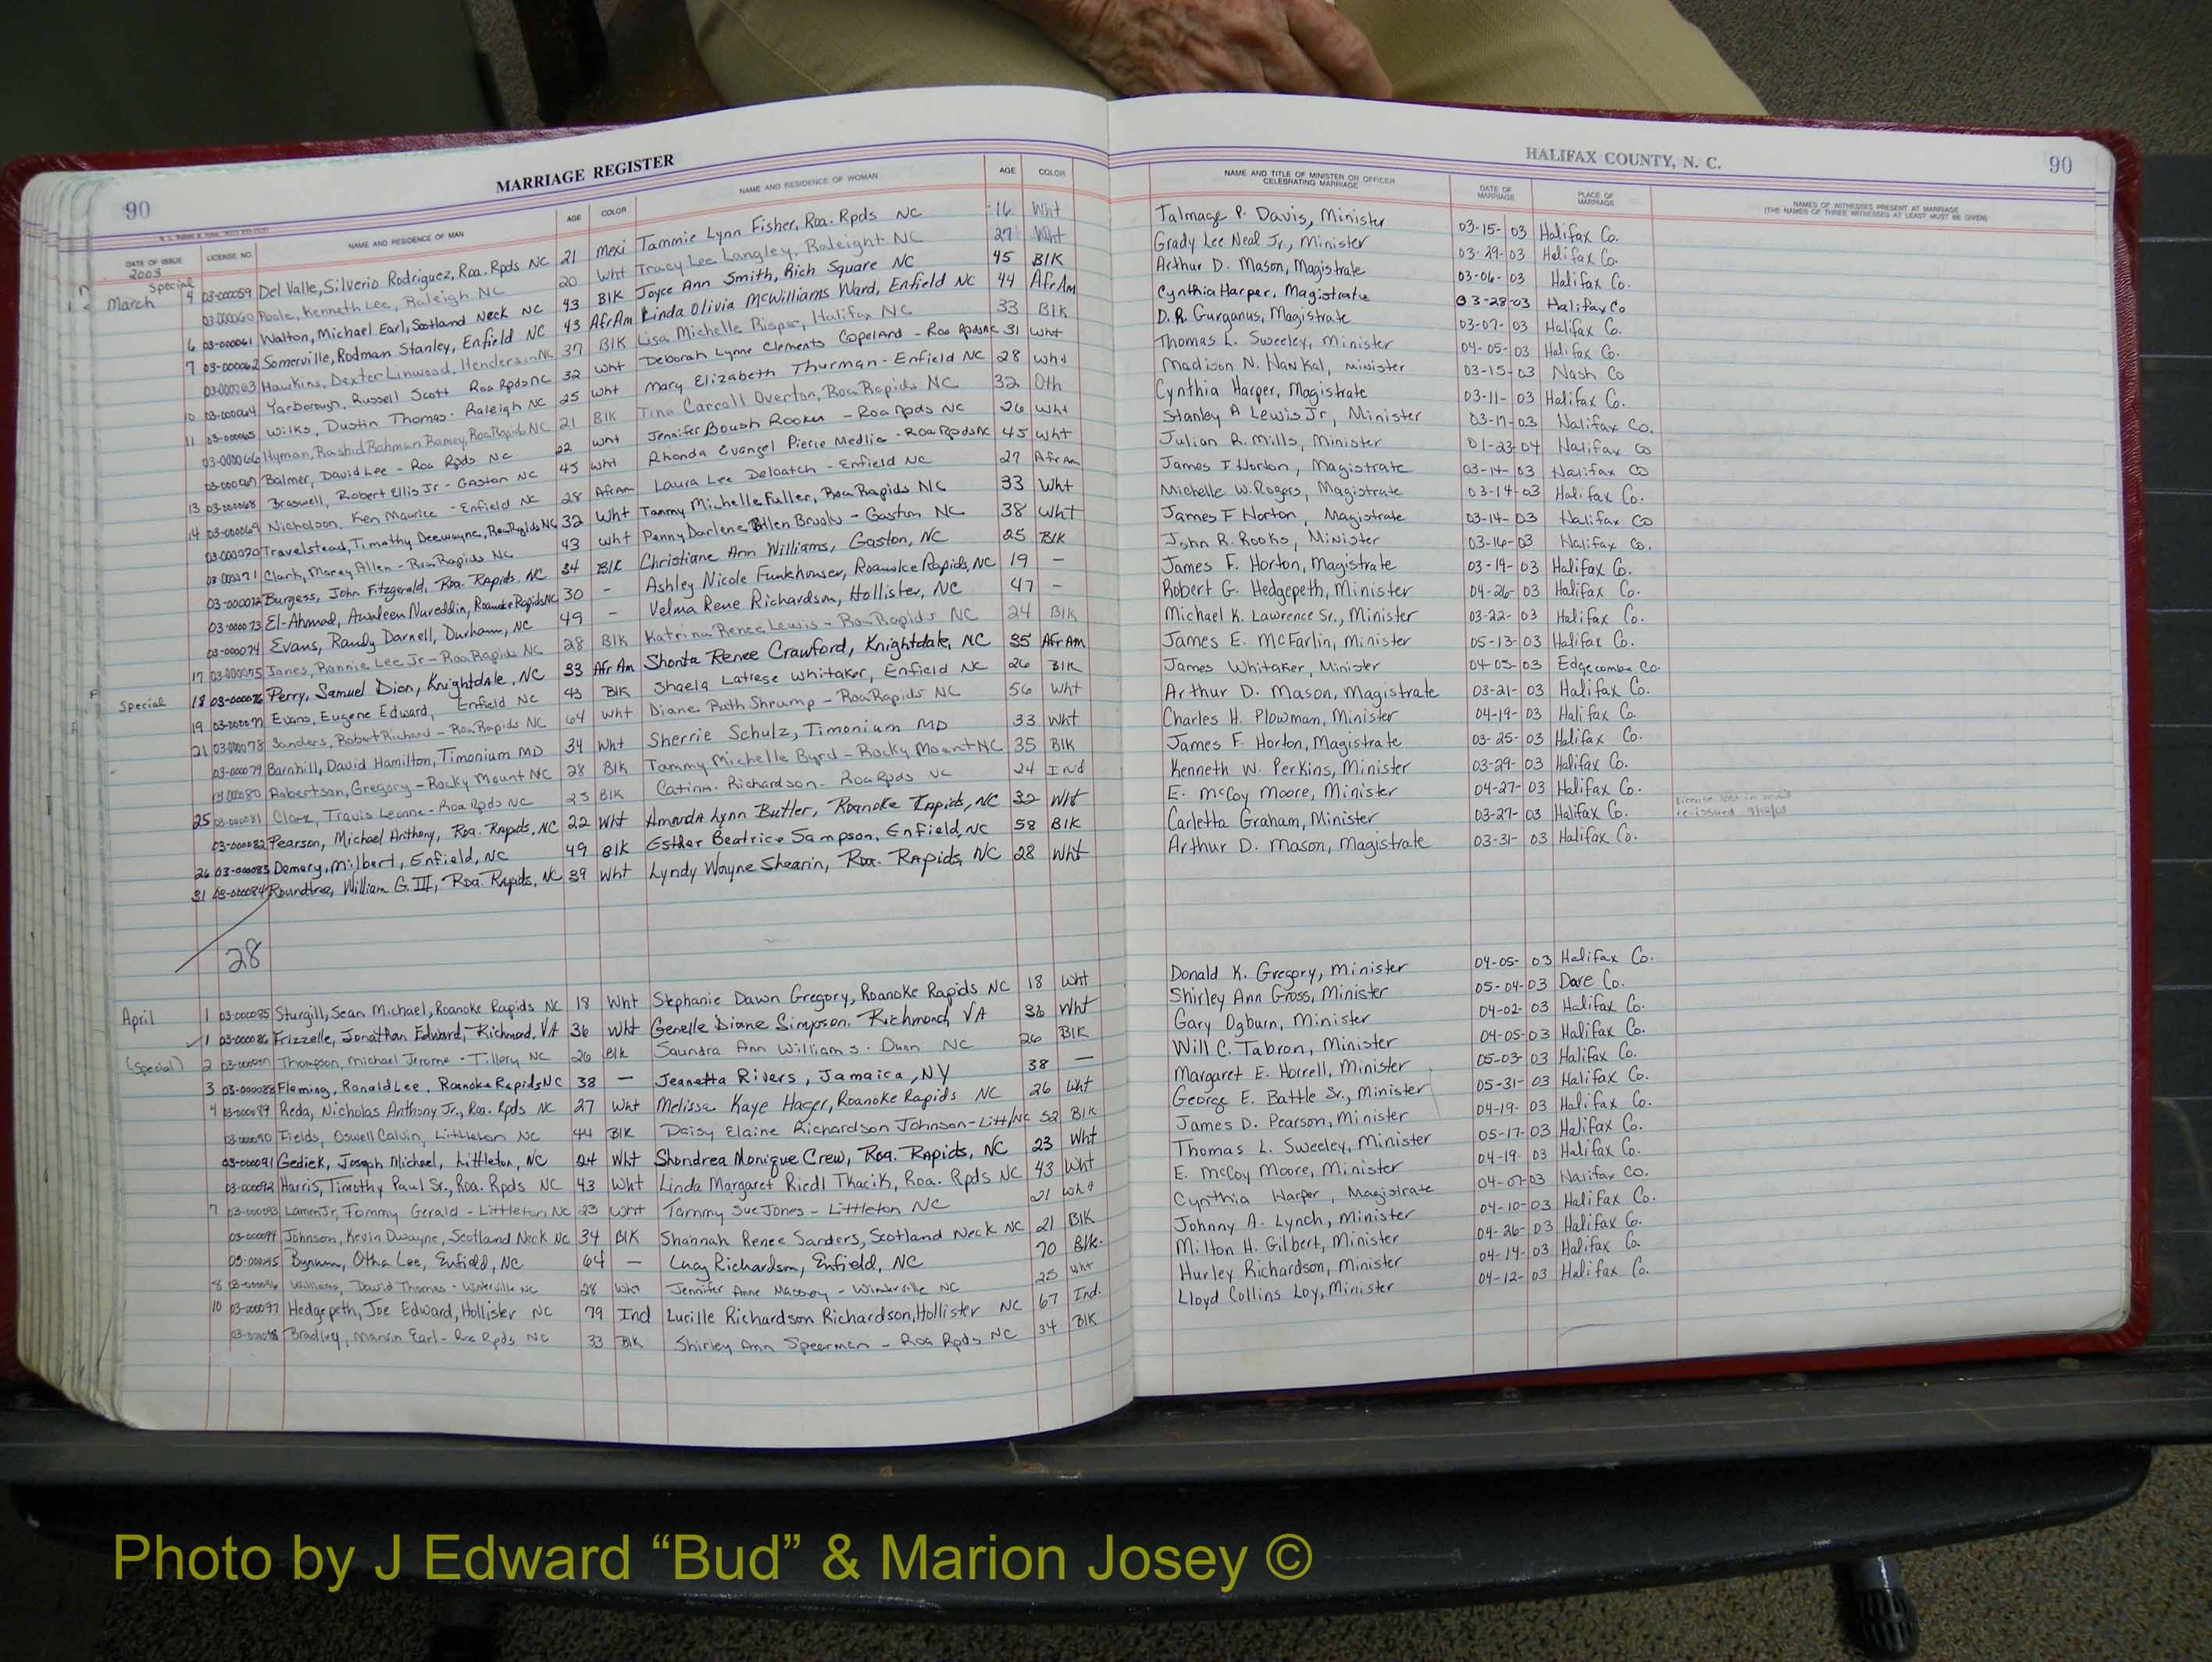 MARRIAGE REGISTER
HALIFAX COUNTY, N. C.
90
90
DATE OF ISSUE LICENSE NO. NAME AND RESIDENCE OF MAN AGE COLOR NAME AND RESIDENCE OF WOMAN AGE COLOR NAME AND TITLE OF MINISTER OR OFFICER CELEBRATING MARRIAGE DATE OF MARRIAGE PLACE OF MARRIAGE NAMES OF WITNESSES PRESENT AT MARRIAGE (THE NAMES OF THREE WITNESSES AT LEAST MUST BE GIVEN)
2003
Special
March 4 03-000059 Del Valle, Silverio Rodriguez, Roa. Rpds NC 21 Mexi Tammie Lynn Fisher, Roa. Rpds NC 16 Wht Talmage P. Davis, Minister 03-15-03 Halifax Co.
03-000060 Poole, Kenneth Lee, Raleigh NC 20 Wht Tracy Lee Langley, Raleigh NC 27 Wht Grady Lee Neal Jr., Minister 03-29-03 Halifax Co.
6 03-000061 Walton, Michael Earl, Scotland Neck NC 43 Blk Joyce Ann Smith, Rich Square NC 45 Blk Arthur D. Mason, Magistrate 03-06-03 Halifax Co.
7 03-000062 Somerville, Rodman Stanley, Enfield NC 43 AfrAm Linda Olivia McWilliams Ward, Enfield NC 44 AfrAm Cynthia Harper, Magistrate 03-28-03 Halifax Co
03-000063 Hawkins, Dexter Linwood, Henderson NC 37 Blk Lisa Michelle, Halifax NC 33 Blk D.R. Gurganus, Magistrate 03-07-03 Halifax Co.
10 03-000064 Yarborough, Russell Scott Roa Rpds NC 32 Wht Deborah Lynne Clements Copeland - Roa Rpds NC 31 Wht Thomas L. Sweeley, Minister 04-05-03 Halifax Co.
11 03-000065 Wilks, Dustin Thomas - Raleigh NC 25 Wht Mary Elizabeth Thurman - Enfield NC 28 Wht Madison N., Minister 03-15-03 Nash Co
03-000066 Hyman, Rashid Rahman Ramey, Roa Rapids NC 21 Blk Tina Carroll Overton, Roa Rapids NC 32 Oth Cynthia Harper, Magistrate 03-11-03 Halifax Co.
03-000067 Balmer, David Lee - Roa Rpds NC 22 Wht Jennifer Boush Rooker - Roa Rpds NC 26 Wht Stanley A Lewis Jr, Minister Halifax Co.
13 03-000068 Braswell, Robert Ellis Jr - Gaston NC 45 Wht Rhonda Evangel Pierce Medlin - Roa Rpds NC 45 Wht Julian R. Mills, Minister 01-23-04 Halifax Co
14 03-000069 Nicholson, Ken Maurice - Enfield NC 28 AfrAm Laura Lee Deloatch - Enfield NC 27 AfrAm James F Horton, Magistrate 03-14-03 Halifax Co
03-000070 Travelstead, Timothy Deewayne, Roa Rapids NC 32 Wht Tammy Michelle Fuller, Roa Rapids NC 33 Wht Michelle W. Rogers, Magistrate 03-14-03 Halifax Co.
03-000071 Clark, Allen - Roa Rapids NC 43 Wht Penny Darlene Allen Brooks - Gaston NC 38 Wht James F Horton, Magistrate 03-14-03 Halifax Co
03-000072 Burgess, John Fitzgerald, Roa. Rapids, NC 34 Blk Christiane Ann Williams, Gaston, NC 25 Blk John R. Rooks, Minister 03-16-03 Halifax Co.
03-000073 El-Ahmad, Nureddin, Roanoke Rapids NC 30 - Ashley Nicole Funkhouser, Roanoke Rapids, NC 19 - James F. Horton, Magistrate 03-19-03 Halifax Co.
03-000074 Evans, Randy Darnell, Durham, NC 49 - Velma Rene Richardson, Hollister, NC 47 - Robert G. Hedgepeth, Minister 04-26-03 Halifax Co.
17 03-000075 Jones, Rannie Lee Jr - Roa Rapids NC 28 Blk Katrina Renee Lewis - Roa Rapids NC 24 Blk Michael K. Lawrence Sr., Minister 03-22-03 Halifax Co.
Special 18 03-000076 Perry, Samuel Dion, Knightdale, NC 33 Afr Am Shonta Renee Crawford, Knightdale, NC 35 Afr Am James E. McFarlin, Minister 05-13-03 Halifax Co.
19 03-000077 Evans, Eugene Edward, Enfield NC 43 Blk Shaela Latrese Whitaker, Enfield NC 26 Blk James Whitaker, Minister 04-05-03 Edgecombe Co.
21 03-000078 Sanders, Robert Richard - Roa Rapids NC 64 Wht Diane Ruth Shrump - Roa Rapids NC 56 Wht Arthur D. Mason, Magistrate 03-21-03 Halifax Co.
03-000079 Barnhill, David Hamilton, Timonium MD 34 Wht Sherrie Schulz, Timonium MD 33 Wht Charles H. Plowman, Minister 04-19-03 Halifax Co.
03-000080 Robertson, Gregory - Rocky Mount NC 28 Blk Tammy Michelle Byrd - Rocky Mount NC 35 Blk James F. Horton, Magistrate 03-25-03 Halifax Co.
25 03-000081 Clark, Travis Leonne - Roa Rpds NC 25 Blk Catina Richardson - Roa Rpds NC 24 Ind Kenneth W. Perkins, Minister 03-29-03 Halifax Co.
03-000082 Pearson, Michael Anthony, Roa. Rapids, NC 22 Wht Amanda Lynn Butler, Roanoke Rapids, NC 32 Wht E. McCoy Moore, Minister 04-27-03 Halifax Co. License lost in mail
26 03-000083 Demery, Milbert, Enfield, NC 49 Blk Esther Beatrice Sampson, Enfield, NC 58 Blk Carletta Graham, Minister 03-27-03 Halifax Co. re-issued 9/12/03
31 03-000084 Roundtree, William G. III, Roa. Rapids, NC 39 Wht Lyndy Wayne Shearin, Roa. Rapids, NC 28 Wht Arthur D. Mason, Magistrate 03-31-03 Halifax Co.
28
April 1 03-000085 Sturgill, Sean Michael, Roanoke Rapids NC 18 Wht Stephanie Dawn Gregory, Roanoke Rapids NC 18 Wht Donald K. Gregory, Minister 04-05-03 Halifax Co.
1 03-000086 Frizzelle, Jonathan Edward, Richmond, VA 36 Wht Genelle Diane Simpson, Richmond, VA 36 Wht Shirley Ann Gross, Minister 05-04-03 Dare Co.
(Special) 2 03-000087 Thompson, Michael Jerome - Tillery NC 26 Blk Saundra Ann Williams - Dunn NC 26 Blk Gary Ogburn, Minister 04-02-03 Halifax Co.
3 03-000088 Fleming, Ronald Lee, Roanoke Rapids NC 38 - Jeanetta Rivers, Jamaica, NY 38 - Will C. Tabron, Minister 04-05-03 Halifax Co.
4 03-000089 Reda, Nicholas Anthony Jr., Roa. Rpds NC 27 Wht Melissa Kaye Hager, Roanoke Rapids NC 26 Wht Margaret E. Horrell, Minister 05-03-03 Halifax Co.
03-000090 Fields, Oswell Calvin, Littleton NC 44 Blk Daisy Elaine Richardson Johnson - Litt/NC 52 Blk George E. Battle Sr., Minister 05-31-03 Halifax Co.
03-000091 Gediek, Joseph Michael, Littleton, NC 24 Wht Shondrea Monique Crew, Roa. Rapids, NC 23 Wht James D. Pearson, Minister 04-19-03 Halifax Co.
03-000092 Harris, Timothy Paul Sr., Roa. Rpds NC 43 Wht Linda Margaret Riedl Tkacik, Roa. Rpds NC 43 Wht Thomas L. Sweeley, Minister 05-17-03 Halifax Co.
7 03-000093 Lamm Jr, Tommy Gerald - Littleton NC 23 Wht Tammy Sue Jones - Littleton NC 21 Wht E. McCoy Moore, Minister 04-19-03 Halifax Co.
03-000094 Johnson, Kevin Dwayne, Scotland Neck NC 34 Blk Shannah Renee Sanders, Scotland Neck NC 21 Blk Cynthia Harper, Magistrate 04-07-03 Halifax Co.
03-000095 Bynum, Otha Lee, Enfield, NC 64 - Lucy Richardson, Enfield, NC 70 Blk. Johnny A. Lynch, Minister 04-10-03 Halifax Co.
8 03-000096 Williams, David Thomas - Winterville NC 28 Wht Jennifer Anne Massey - Winterville NC 25 Wht Milton H. Gilbert, Minister 04-26-03 Halifax Co.
10 03-000097 Hedgepeth, Joe Edward, Hollister NC 79 Ind Lucille Richardson Richardson, Hollister NC 67 Ind. Hurley Richardson, Minister 04-14-03 Halifax Co.
03-000098 Bradley, Marvin Earl - Roa Rpds NC 33 Blk Shirley Ann Spearman - Roa Rpds NC 34 Blk Lloyd Collins Loy, Minister 04-12-03 Halifax Co.
Photo by J Edward “Bud” & Marion Josey ©